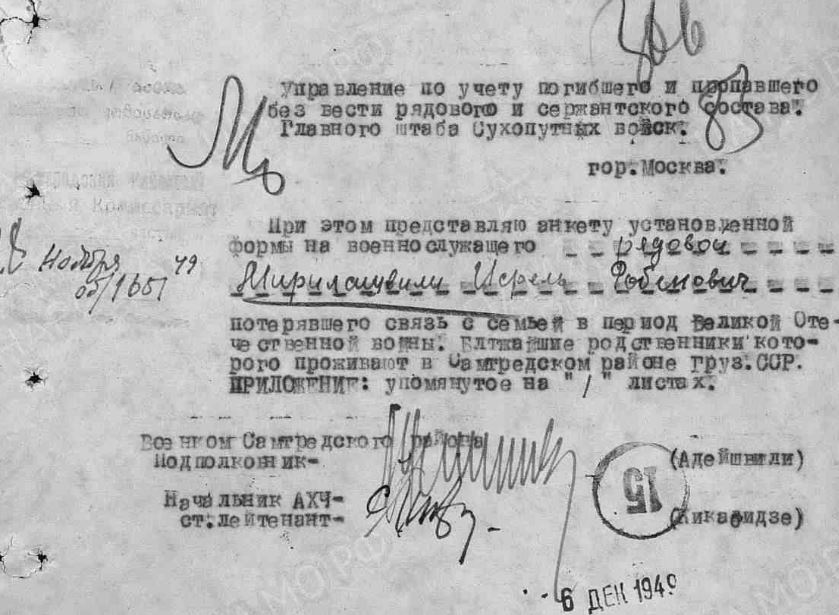 Управление по учету погибшего и пропавшего
без вести рядового и сержантского состава.
Главного штаба Сухопутных войск.
гор.Москва.
При этом представляю анкету установленной
формы на военнослужащего рядовой
Мирилашвили Исрель Робенович
потерявшего связь с семьей в период Великой Оте-
чественной войны. Ближайшие родственники кото-
рого проживают в Самтредском районе Груз.ССР.
ПРИЛОЖЕНИЕ: упомянутое на "1" листах.
Ноября 49
Военком Самтредского района
Подполковник-
(Адейшвили)
Начальник АХЧ-
ст.лейтенант-
(Кикабидзе)
15
6 ДЕК 1949